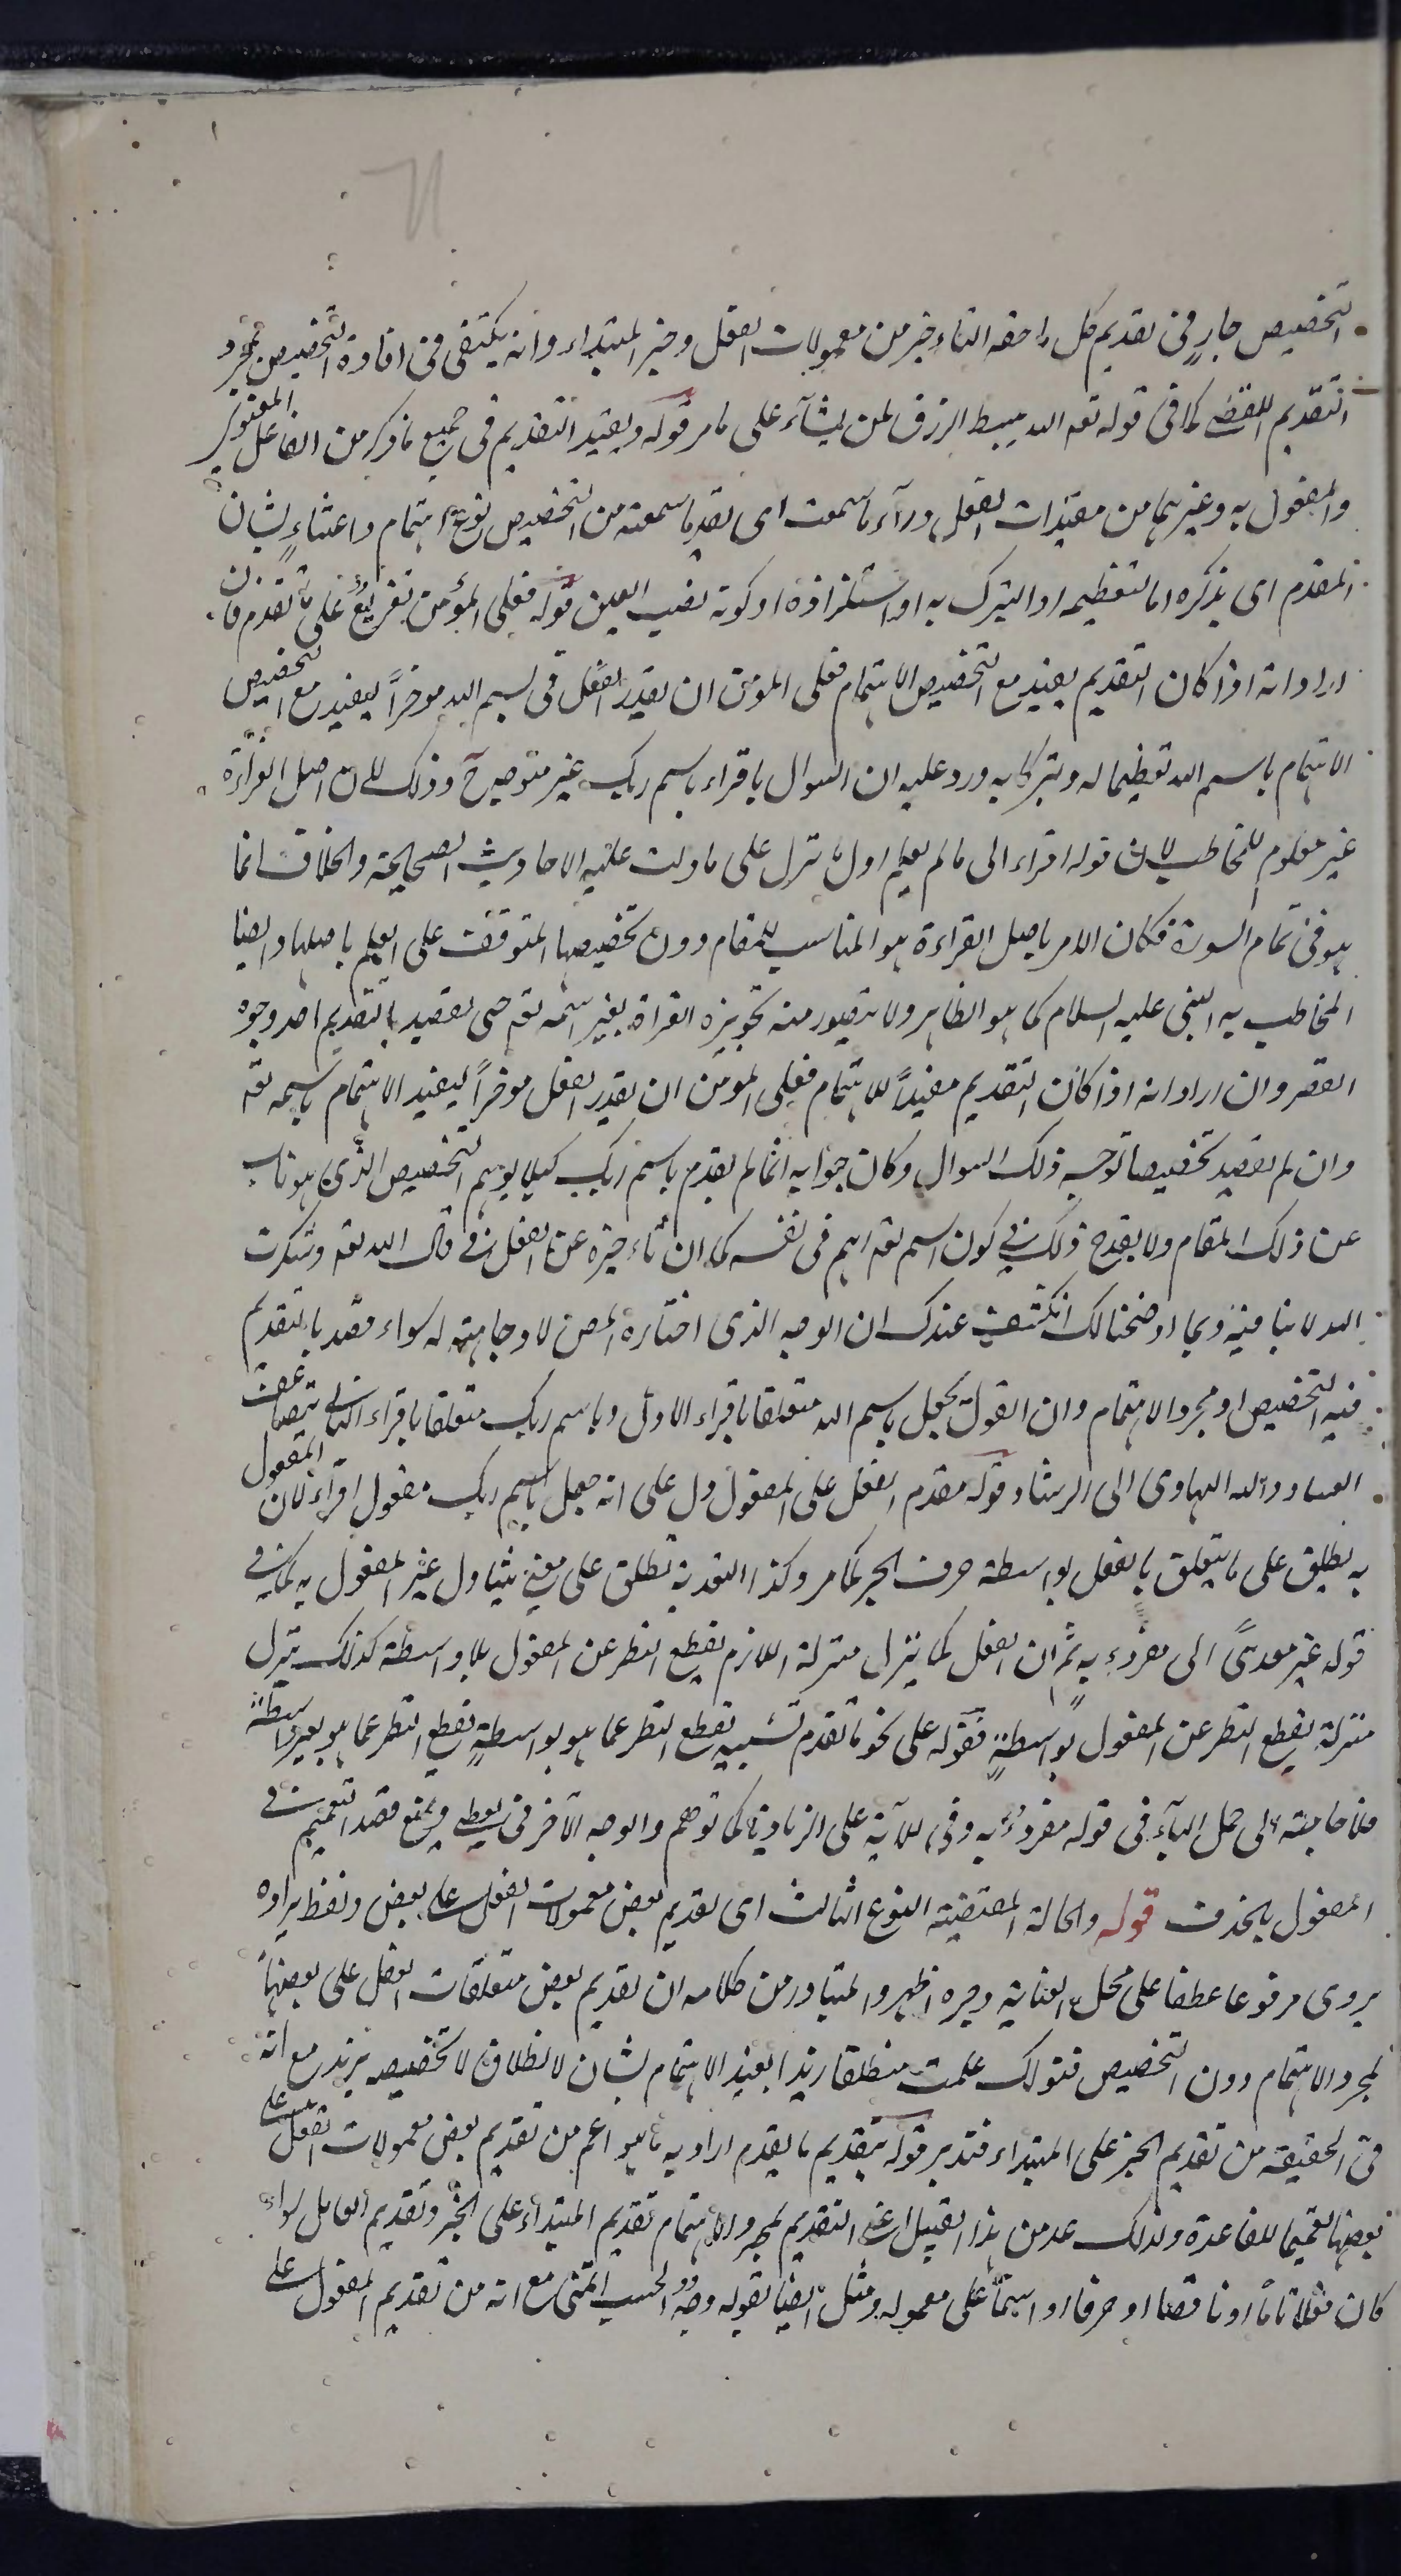 التخصيص جارٍ فى تقديم كل ما حقه التاخير من معمولات الفعل وخبر المبتداء وانه يكتفى فى افادة التخصيص بمجرد
التقديم اللفظى كما فى قوله تعه الله يبسط الرزق لمن يشآء على ما مر قوله ويفيد التقديم فى جميع ما ذكر من الفاعل المعنوى
والمفعول به وغيرهما من مقيدات الفعل ورآء ما سمعت اى بعد ما سمعته من التخصيص نوع اهتمام واعتناءٍ بشان
المقدم اى بذكره اما لتعظيمه او التبرك به او استلذاذه او كونه نصب العين قوله فعلى المؤمن تفريعٌ على ما تقدم فان
اراد انه اذا كان التقديم يفيد مع التخصيص الاهتمام فعلى المومن ان يقدر الفعل فى بسم الله موخراً ليفيد مع التخصيص
الاهتمام باسم الله تعظيما له وتبركا به ورد عليه ان السوال باقراء باسم ربك غير متوجه ح وذلك لان اصل القراءة
غير معلوم للمخاطب لان قوله اقراء الى ما لم يعلم اول ما نزل على ما دلت عليه الاحاديث الصحيحة والخلاف انما
هو فى تمام السورة فكان الامر باصل القراءة هو المناسب للمقام دون تخصيصها المتوقف على العلم باصلها وايضا
المخاطب به النبى عليه السلام كما هو الظاهر ولا يتصور منه تجويزه القراة بغير اسمه تعه حتى يقصد بالتقديم احد وجوه
القصر وان اراد انه اذا كان التقديم مفيداً للاهتمام فعلى المومن ان يقدر الفعل موخراً ليفيد الاهتمام باسمه تعه
وان لم يقصد تخصيصا توجه ذلك السوال وكان جوابه انما لم يقدم باسم ربك كيلا يوهم التخصيص الذى هو ناب
عن ذلك المقام ولا يقدح ذلك فى كون اسمه تعه اهم فى نفسه كما ان تاخيره عن الفعل فى قال الله تعه وشكرت
الله لا ينافيه وبما اوضحنا لك انكشف عندك ان الوجه الذى اختاره المص لا وجاهة له سواء قصد بالتقديم
فيه التخصيص او مجرد الاهتمام وان القول بجعل باسم الله متعلقا باقراء الاول وباسم ربك متعلقا باقراء الثانى متضاعف
الفساد والله الهادى الى الرشاد قوله مقدم الفعل على المفعول دل على انه جعل باسم ربك مفعول اقراء لان المفعول
به يطلق على ما يتعلق بالفعل بواسطة حرف الجر كما مر وكذا التعدية تطلق على معنى يتناول غير المفعول به كما فى
قوله غير معدىً الى مقروء به ثم ان الفعل كما ينزل منزلة اللازم بقطع النظر عن المفعول بلا واسطة كذلك ينزل
منزلة بقطع النظر عن المفعول بواسطةٍ فقوله على نحو ما تقدم تشبيه لقطع النظر عما هو بواسطةٍ بقطع النظر عما هو بغير واسطة
فلا حاجة الى حمل البآء فى قوله مقروءٌ به وفى الآية على الزيادة كما توهم والوجه الآخر فى يعطى ويمنع قصد التعميم فى
المفعول بالحذف قوله والحالة المقتضية النوع الثالث اى تقديم بعض معمولات الفعل على بعض ولفظ يراده
يروى مرفوعا عطفا على محل العناية وجره اظهر والمتبادر من كلامه ان تقديم بعض متعلقات الفعل على بعضها
لمجرد الاهتمام دون التخصيص فقولك علمت منطلقا زيدا يفيد الاهتمام بشان الانطلاق لا تخصيصه بزيد مع انه
فى الحقيقة من تقديم الخبر على المبتداء فتدبر قوله بتقديم ما يقدم اراد به ما هو اعم من تقديم بعض معمولات الفعل على
بعضها تعميما للقاعدة ولذلك عد من هذا القبيل اعنى التقديم لمجرد الاهتمام تقديم المبتداء على الخبر وتقديم العامل سواء
كان فعلا تاما او ناقصا او حرفا او اسما على معموله ومثل ايضا بقوله وجه الحبيب اتمنى مع انه من تقديم المفعول على